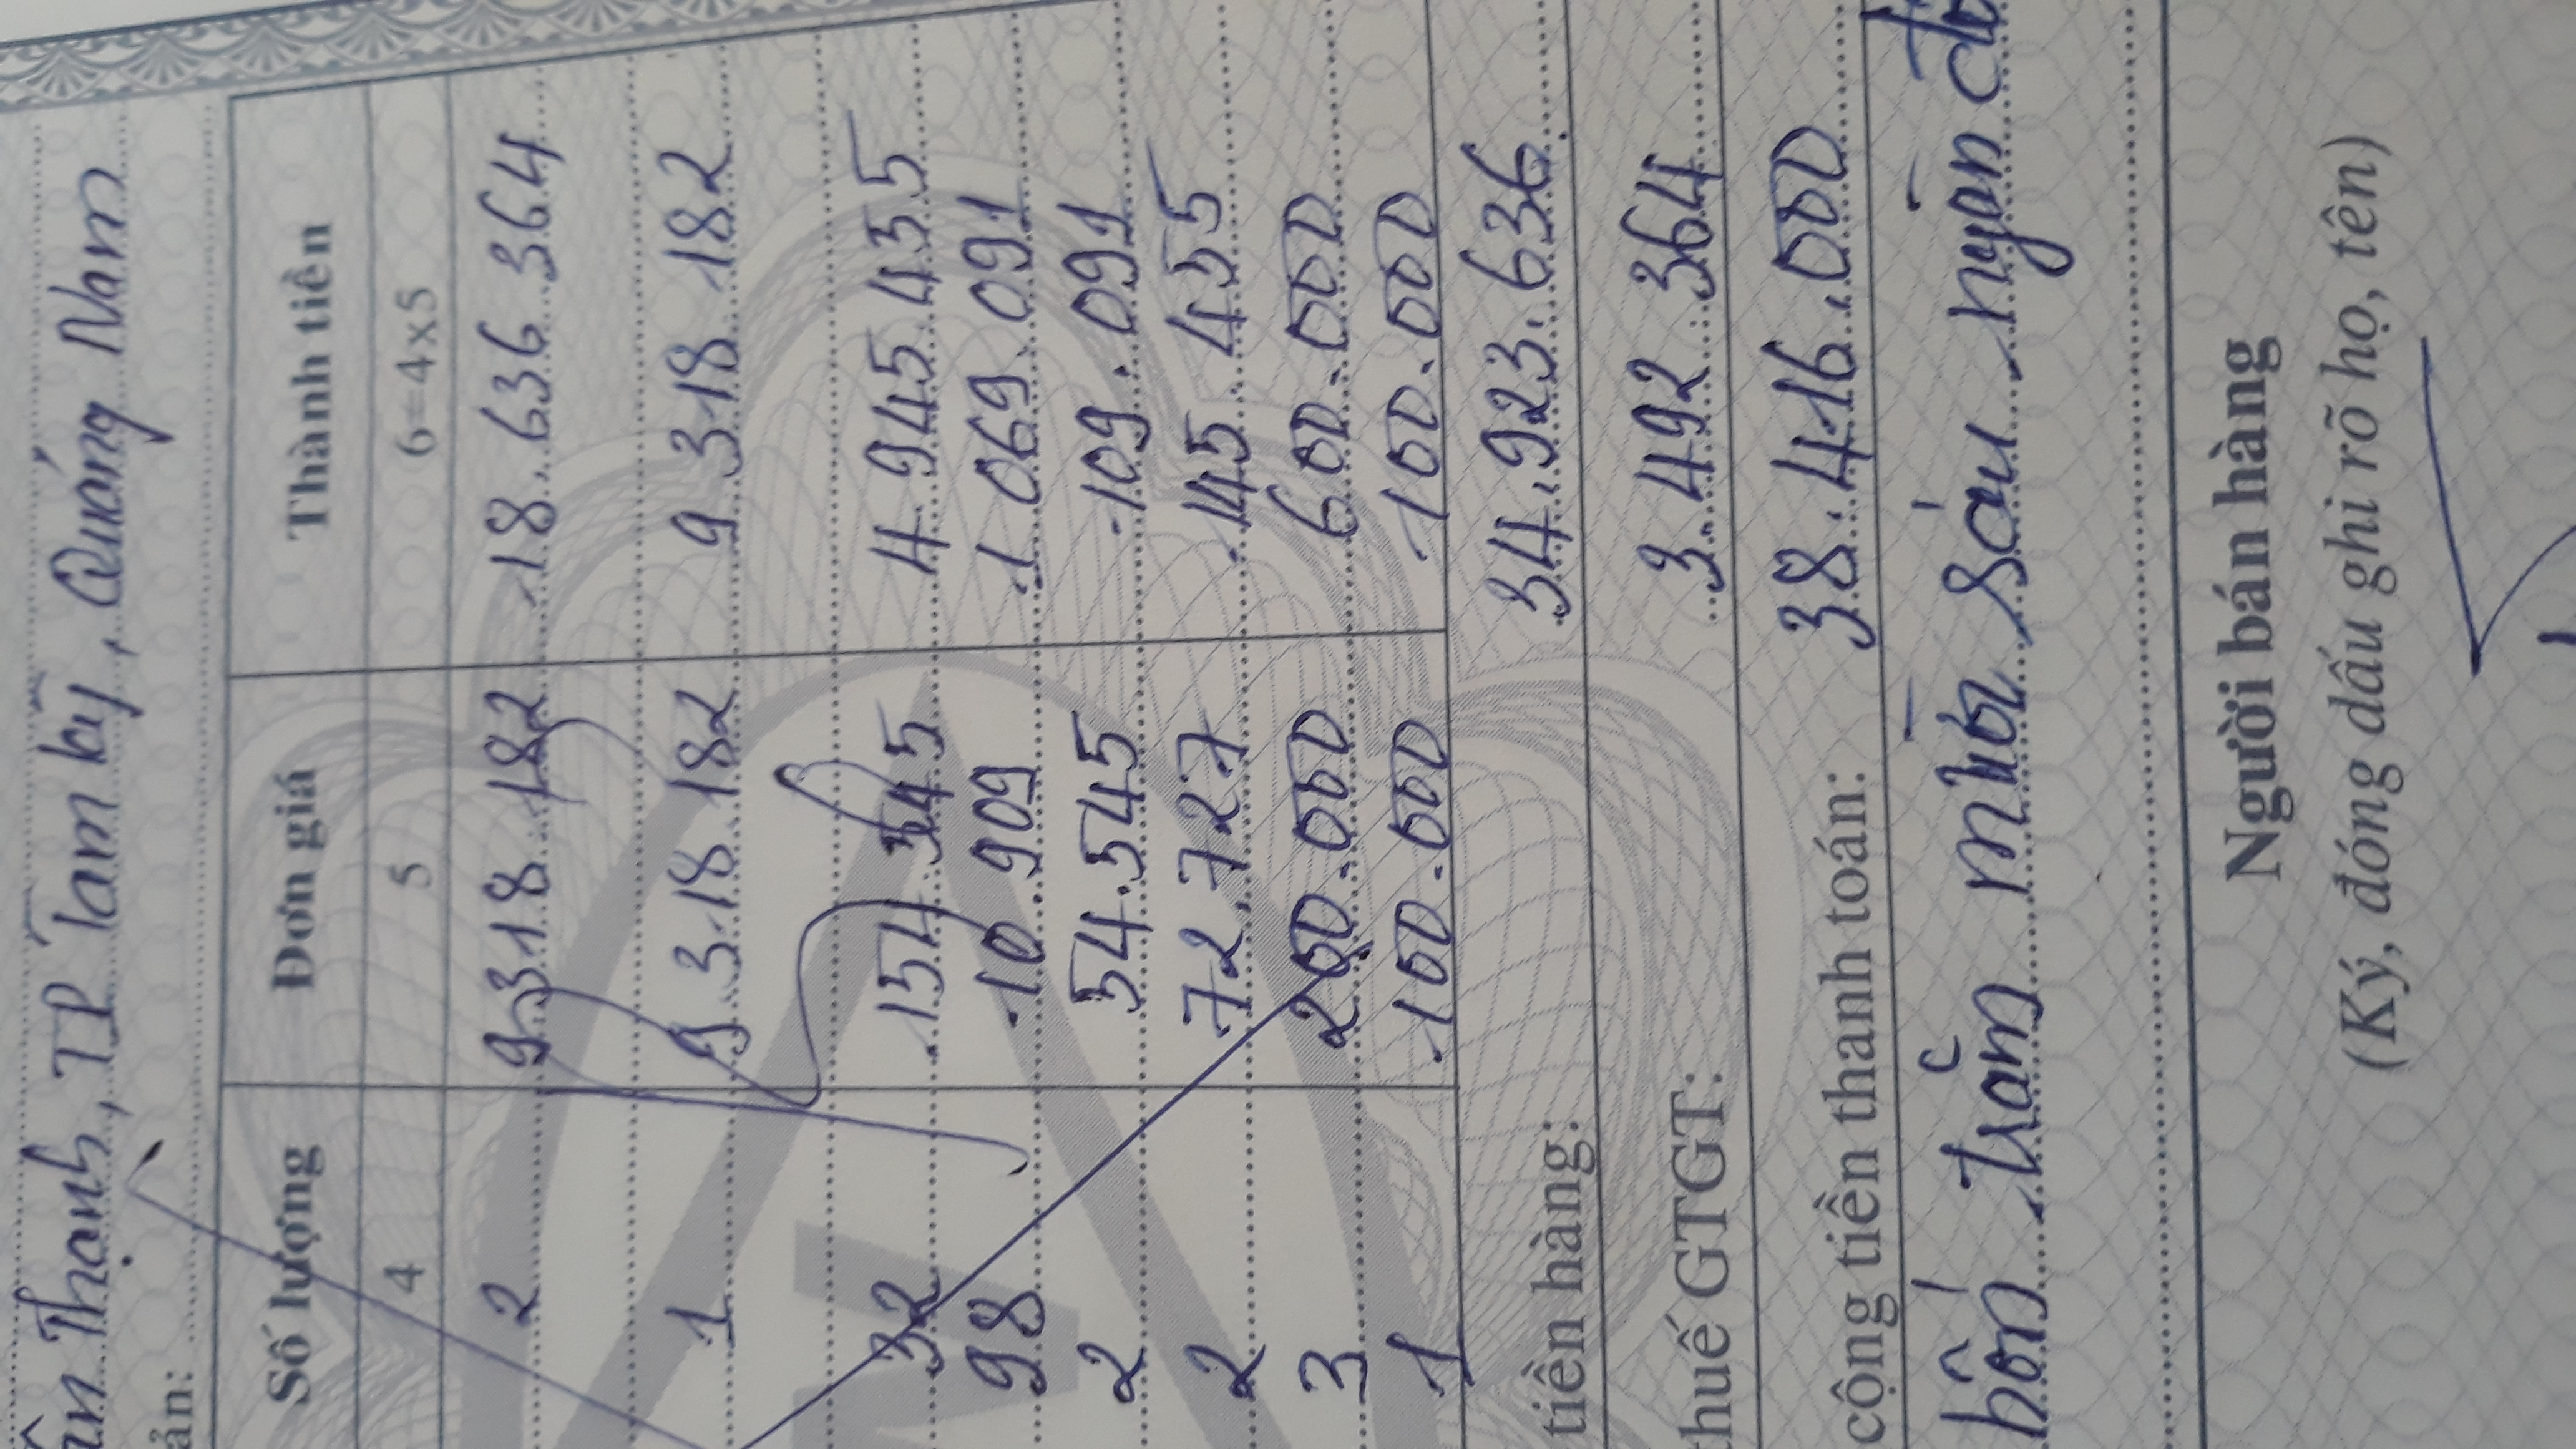 ân Thạnh, TP Tam Kỳ, Quảng Nam
ản:
Số lượng Đơn giá Thành tiền
4 5 6=4x5
2 9.318.182 18.636.364
1 9.318.182 9.318.182
32 154.545 4.945.435
98 10.909 1.069.091
2 54.545 109.091
2 72.727 145.455
3 200.000 600.000
1 100.000 100.000
tiền hàng: 34.923.636
thuế GTGT: 3.492.364
cộng tiền thanh toán: 38.416.000
bốn trăm mười sáu nyàn đồ
Người bán hàng
(Ký, đóng dấu ghi rõ họ, tên)